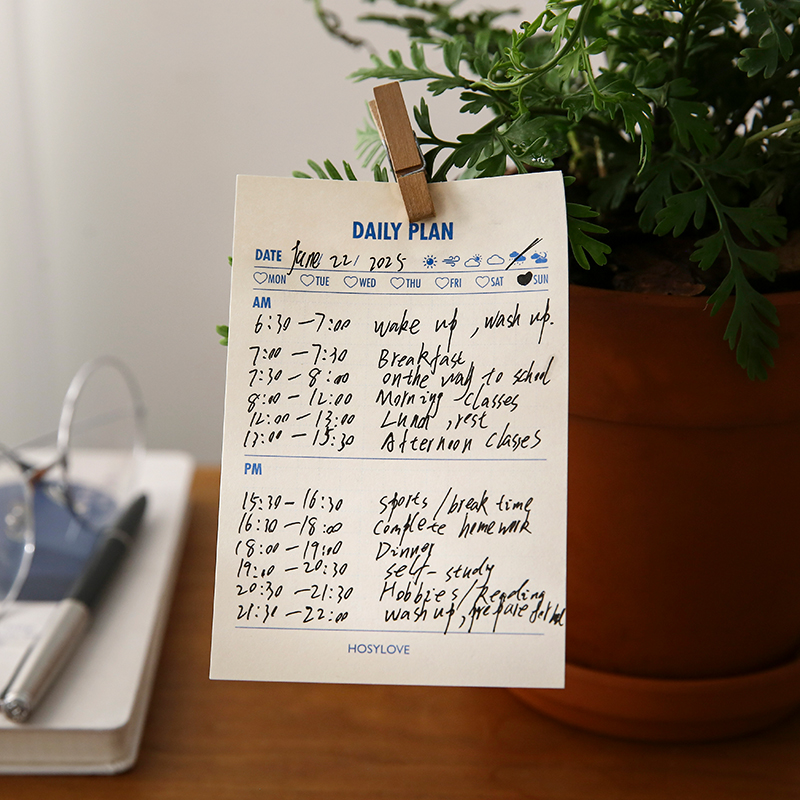 DAILY PLAN
DATE June 22, 2025
MON TUE WED THU FRI SAT SUN
AM
6:30 — 7:00 wake up, wash up.
7:00 — 7:30 Breakfast
7:30 — 8:00 on the way to school
8:00 — 12:00 Morning classes
12:00 — 13:00 Lunch, rest
13:00 — 15:30 Afternoon classes
PM
15:30 — 16:30 sports / break time
16:30 — 18:00 complete homework
18:00 — 19:00 Dinner
19:00 — 20:30 self-study
20:30 — 21:30 Hobbies / Reading
21:30 — 22:00 wash up, prepare for bed
HOSYLOVE